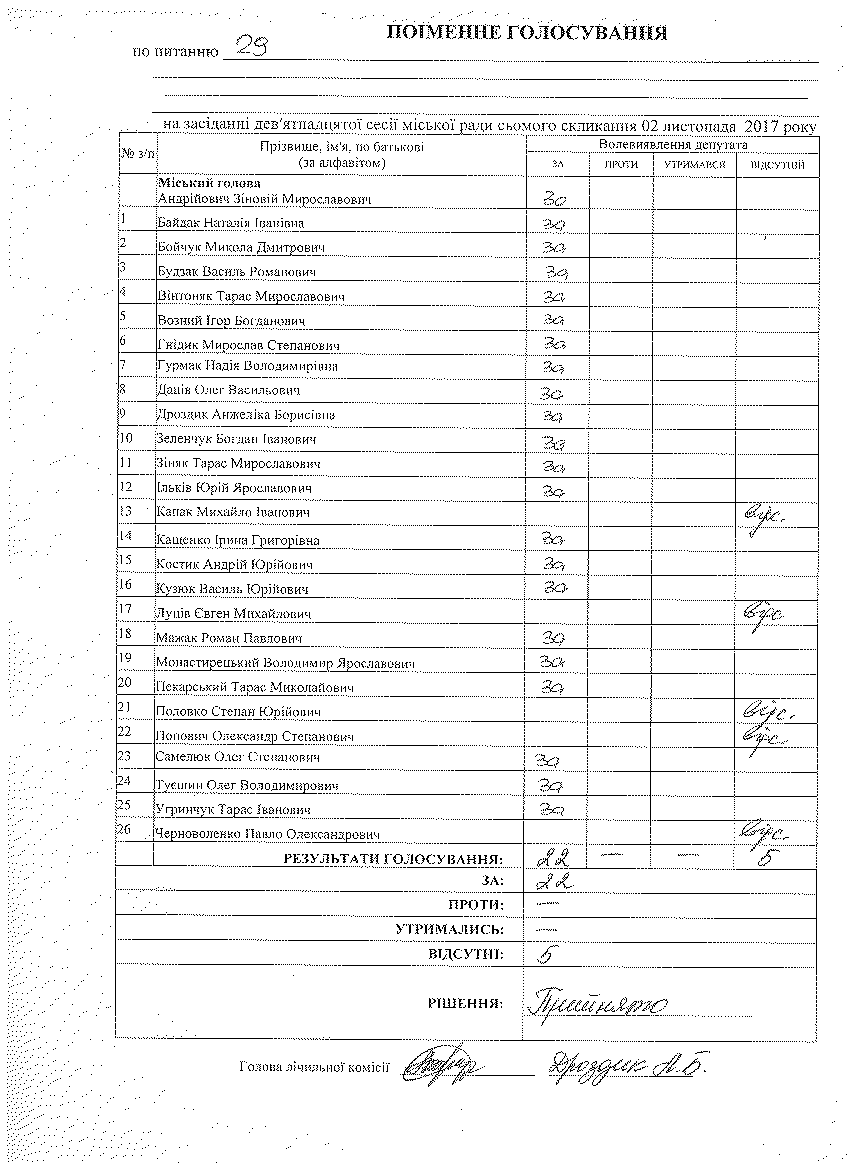 ПОІМЕННЕ ГОЛОСУВАННЯ
по питанню 29
на засіданні дев'ятнадцятої сесії міської ради сьомого скликання 02 листопада 2017 року
№ з/п Прізвище, ім'я, по батькові (за алфавітом) Волевиявлення депутата
ЗА ПРОТИ УТРИМАВСЯ ВІДСУТНІЙ
Міський голова
Андрійович Зіновій Мирославович За
1 Байдак Наталія Іванівна За
2 Бойчук Микола Дмитрович За
3 Будзак Василь Романович За
4 Вінтоняк Тарас Мирославович За
5 Возний Ігор Богданович За
6 Гнідик Мирослав Степанович За
7 Гурмак Надія Володимирівна За
8 Даців Олег Васильович За
9 Дроздик Анжеліка Борисівна За
10 Зеленчук Богдан Іванович За
11 Зіняк Тарас Мирославович За
12 Ільків Юрій Ярославович За
13 Капак Михайло Іванович відс.
14 Кащенко Ірина Григорівна За
15 Костик Андрій Юрійович За
16 Кузюк Василь Юрійович За
17 Луців Євген Михайлович відс
18 Мажак Роман Павлович За
19 Монастирецький Володимир Ярославович За
20 Пекарський Тарас Миколайович За
21 Половко Степан Юрійович відс.
22 Попович Олександр Степанович відс
23 Самелюк Олег Степанович За
24 Туєшин Олег Володимирович За
25 Угринчук Тарас Іванович За
26 Черноволенко Павло Олександрович відс.
РЕЗУЛЬТАТИ ГОЛОСУВАННЯ: 22 — — 5
ЗА: 22
ПРОТИ: —
УТРИМАЛИСЬ: —
ВІДСУТНІ: 5
РІШЕННЯ: Прийнято
Голова лічильної комісії Дроздик А.Б.